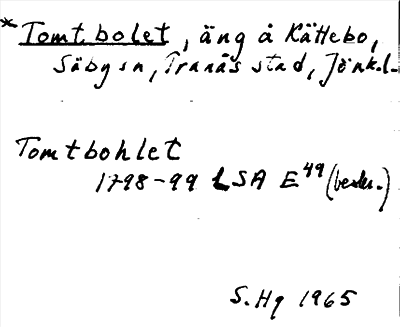 *Tomtbolet, äng å Kättebo,
Säby sn, Tranås stad, Jönk.l.
Tomtbohlet
1798-99 LSA E49 (beskr.)
S.Hg 1965